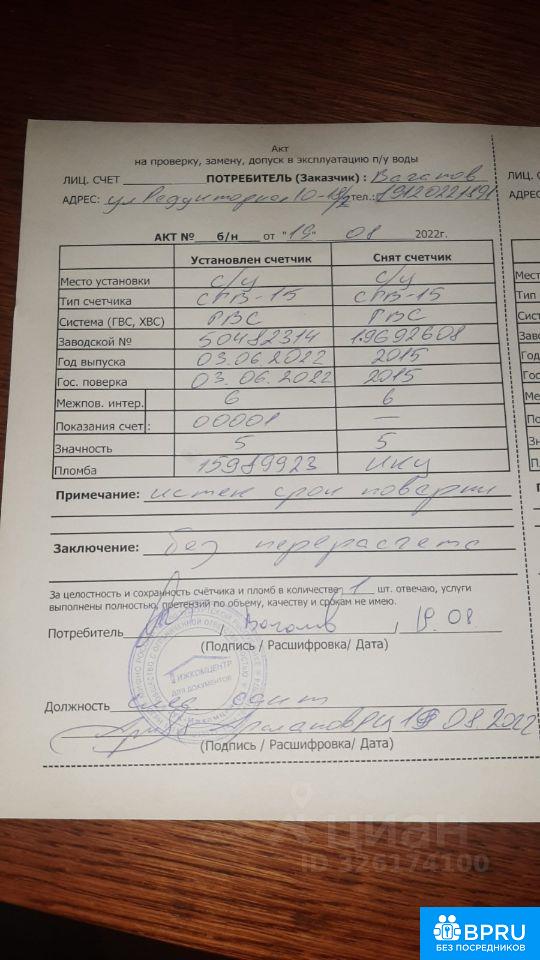 Акт
на проверку, замену, допуск в эксплуатацию п/у воды
ЛИЦ. СЧЕТ ПОТРЕБИТЕЛЬ (Заказчик) : Вагапов
АДРЕС: ул Редукторная 10 тел.:
АКТ № б/н от "19" 08 2022г.
Установлен счетчик Снят счетчик
Место установки с/у с/у
Тип счетчика СГВ-15 СГВ-15
Система (ГВС, ХВС) ГВС ГВС
Заводской № 50482314 19692608
Год выпуска 03.06.2022 2015
Гос. поверка 03.06.2022 2015
Межпов. интер. 6 6
Показания счет.: 00001 —
Значность 5 5
Пломба 15989923 ИКЦ
Примечание: истек срок поверки
Заключение: без перерасчета
За целостность и сохранность счётчика и пломб в количестве 1 шт. отвечаю, услуги
выполнены полностью, претензий по объему, качеству и срокам не имею.
Потребитель Вагапов / 19.08.
(Подпись / Расшифровка/ Дата)
ИЖКОМЦЕНТР
ДЛЯ ДОКУМЕНТОВ
Должность слесарь
08.2022
(Подпись / Расшифровка/ Дата)
ЛИЦ. С
АДРЕС
Мест
Тип
Сист
Заво
Год
Гос.
Ме
По
Зн
Пл
циан
ID 326174100
BPRU
БЕЗ ПОСРЕДНИКОВ